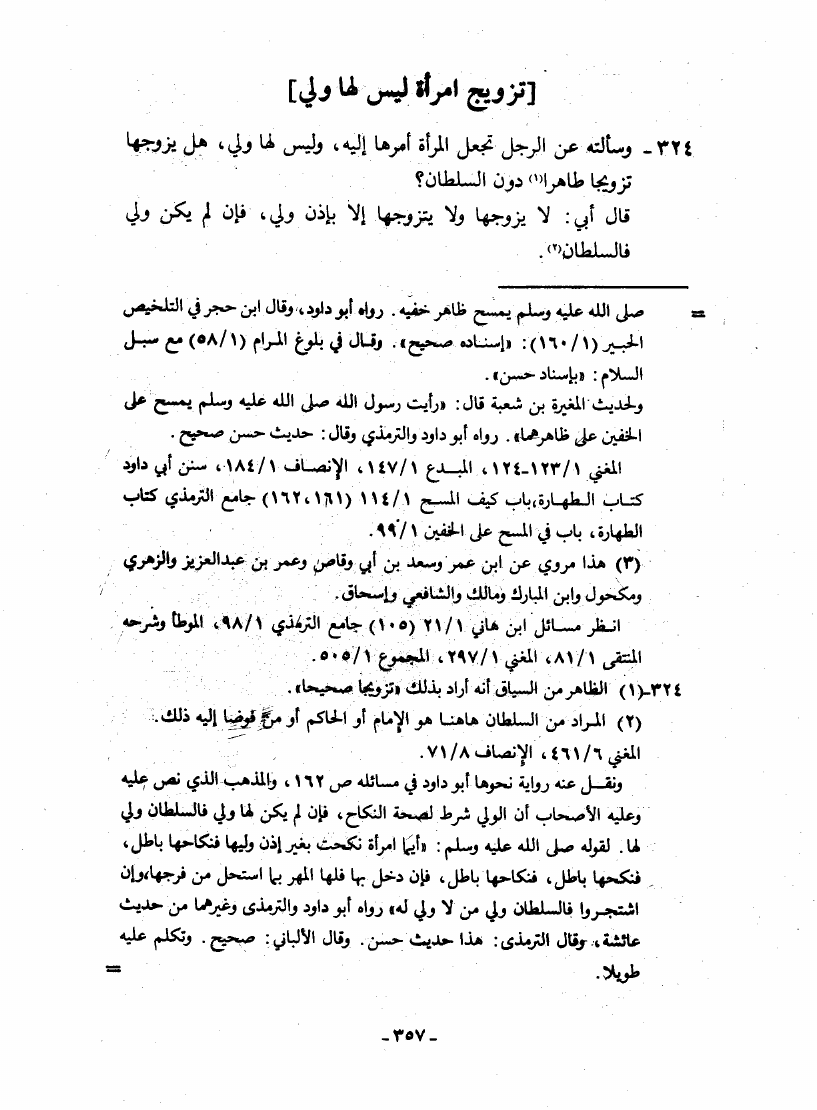 [تزويج امرأة ليس لها ولي]
٣٢٤ - وسألته عن الرجل تجعل المرأة أمرها إليه، وليس لها ولي، هل يزوجها
تزويجا طاهرا(١) دون السلطان؟
قال أبي: لا يزوجها ولا يتزوجها إلا بإذن ولي، فإن لم يكن ولي
فالسلطان(٢).
= صلى الله عليه وسلم يمسح ظاهر خفيه. رواه أبو داود، وقال ابن حجر في التلخيص
الحبير (١/١٦٠): «إسناده صحيح». وقال في بلوغ المرام (١/٥٨) مع سبل
السلام: «بإسناد حسن».
ولحديث المغيرة بن شعبة قال: «رأيت رسول الله صلى الله عليه وسلم يمسح على
الخفين على ظاهرهما». رواه أبو داود والترمذي وقال: حديث حسن صحيح.
المغني ١/١٢٣-١٢٤، المبدع ١/١٤٧، الإنصاف ١/١٨٤، سنن أبي داود
كتاب الطهارة، باب كيف المسح ١/١١٤ (١٦١، ١٦٢) جامع الترمذي كتاب
الطهارة، باب في المسح على الخفين ١/٩٩.
(٣) هذا مروي عن ابن عمر وسعد بن أبي وقاص وعمر بن عبدالعزيز والزهري
ومكحول وابن المبارك ومالك والشافعي وإسحاق.
انظر مسائل ابن هاني ١/٢١ (١٠٥) جامع الترمذي ١/٩٨، الموطأ وشرحه
المنتقى ١/٨١، المغني ١/٢٩٧، المجموع ١/٥٠٥.
٣٢٤-(١) الظاهر من السياق أنه أراد بذلك «تزويجا صحيحا».
(٢) المراد من السلطان هاهنا هو الإمام أو الحاكم أو من فوضا إليه ذلك.
المغني ٦/٤٦١، الإنصاف ٨/٧١.
ونقل عنه رواية نحوها أبو داود في مسائله ص ١٦٢، والمذهب الذي نص عليه
وعليه الأصحاب أن الولي شرط لصحة النكاح، فإن لم يكن لها ولي فالسلطان ولي
لها. لقوله صلى الله عليه وسلم: «أيما امرأة نكحت بغير إذن وليها فنكاحها باطل،
فنكحها باطل، فنكاحها باطل، فإن دخل بها فلها المهر بما استحل من فرجها، وإن
اشتجروا فالسلطان ولي من لا ولي له» رواه أبو داود والترمذى وغيرهما من حديث
عائشة، وقال الترمذى: هذا حديث حسن. وقال الألباني: صحيح. وتكلم عليه
طويلا. =
- ٣٥٧ -